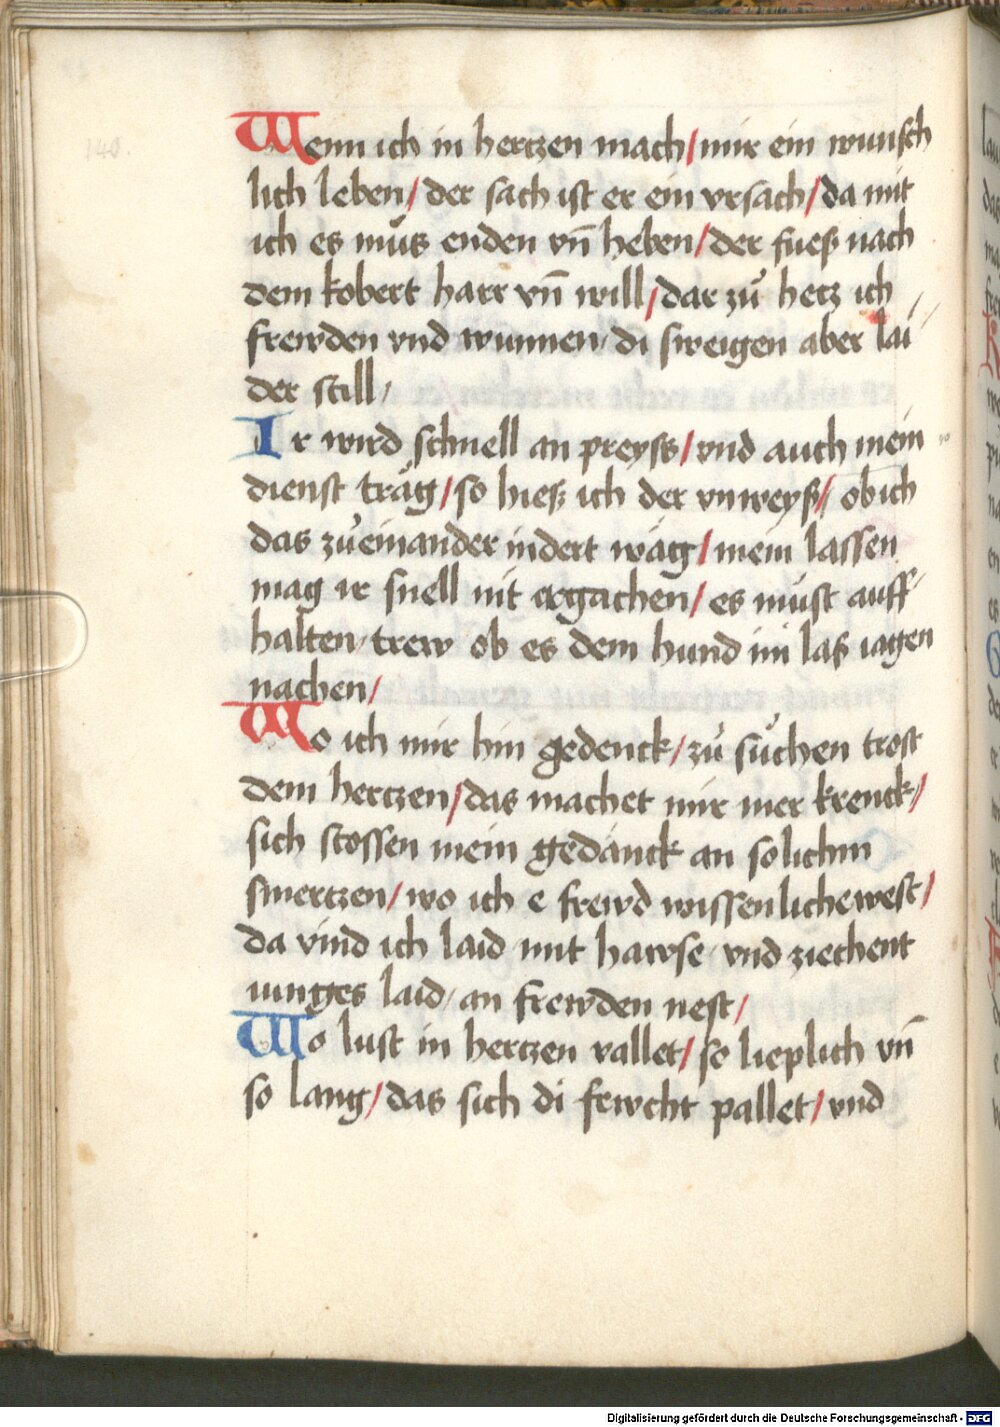 Wenn ich in hertzen mach/ mir ein wunsch
lich leben/ der sach ist er ein vrsach/ da mit
ich es můs enden vn̄ heben/ der fuesß nach
dem kobert harr vn̄ will/ dar zů hetz ich
frewden vnd wunnen/ di sweigen aber lai
der still/
Ir wird schnell an preyss/ vnd auch mein
dienst träg/ so hiesß ich der vnweysß/ ob ich
das zůeinander indert wäg/ mein lassen
mag ir snell nit ergachen/ es můst auff
halten/ trew ob es dem hund im lasß iagen
nachen/
Wo ich mir hin gedenck/ zů sůchen trost
dem hertzen/ das machet mir mer krenck/
sich stossen mein gedänck an solichm
smertzen/ wo ich e frewd wissenlichewest/
da vind ich laid mit hawse vnd ziechent
iunges laid/ an frewden nest/
Wo lust in hertzen vallet/ so lieplich vn̄
so lang/ das sich di frwcht pallet/ vnd
Digitalisierung gefördert durch die Deutsche Forschungsgemeinschaft - DFG